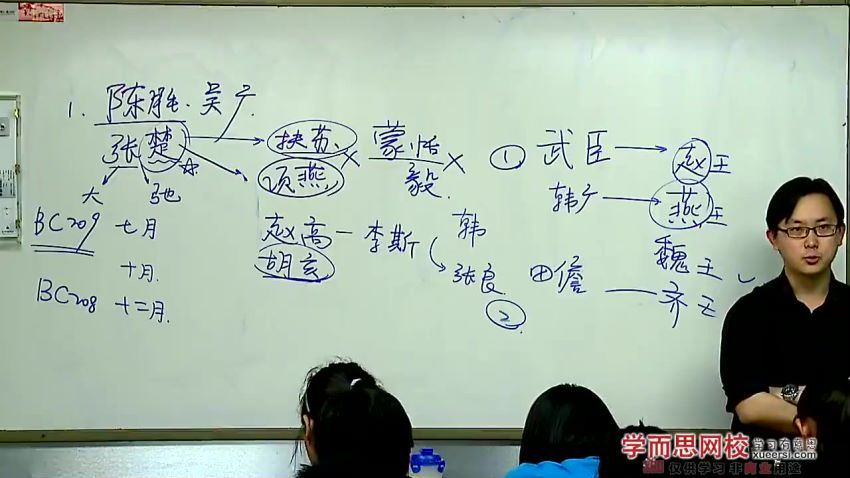 1. 陈胜.吴广.
张楚
大
弛
扶苏
项燕
蒙恬
毅
武臣
赵王
①
韩广
燕王
BC209 七月
十月.
BC208 十二月.
赵高一李斯
胡亥
韩
张良
田儋
魏王
齐王
②
学而思网校
学习有意思
xueersi.com
仅供学习 非商业用途